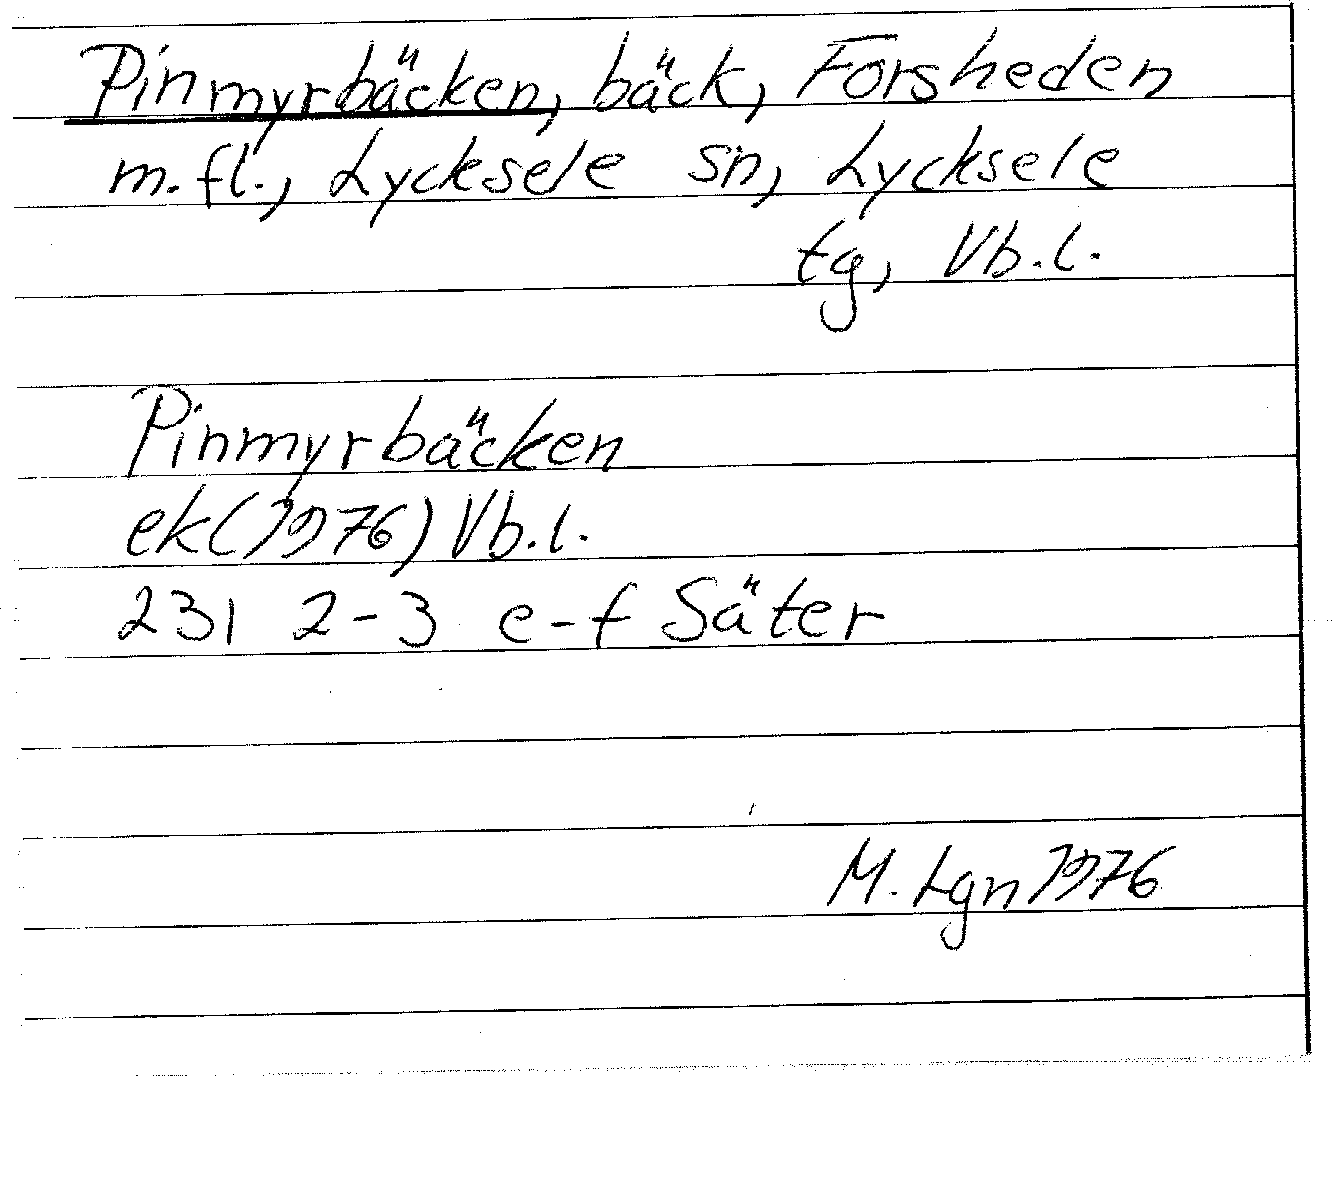 Pinmyrbäcken, bäck, Forsheden
m.fl., Lycksele sn, Lycksele
tg, Vb.l.
Pinmyrbäcken
ek(1976) Vb.l.
231 2-3 e-f Säter
M. Lgn 1976